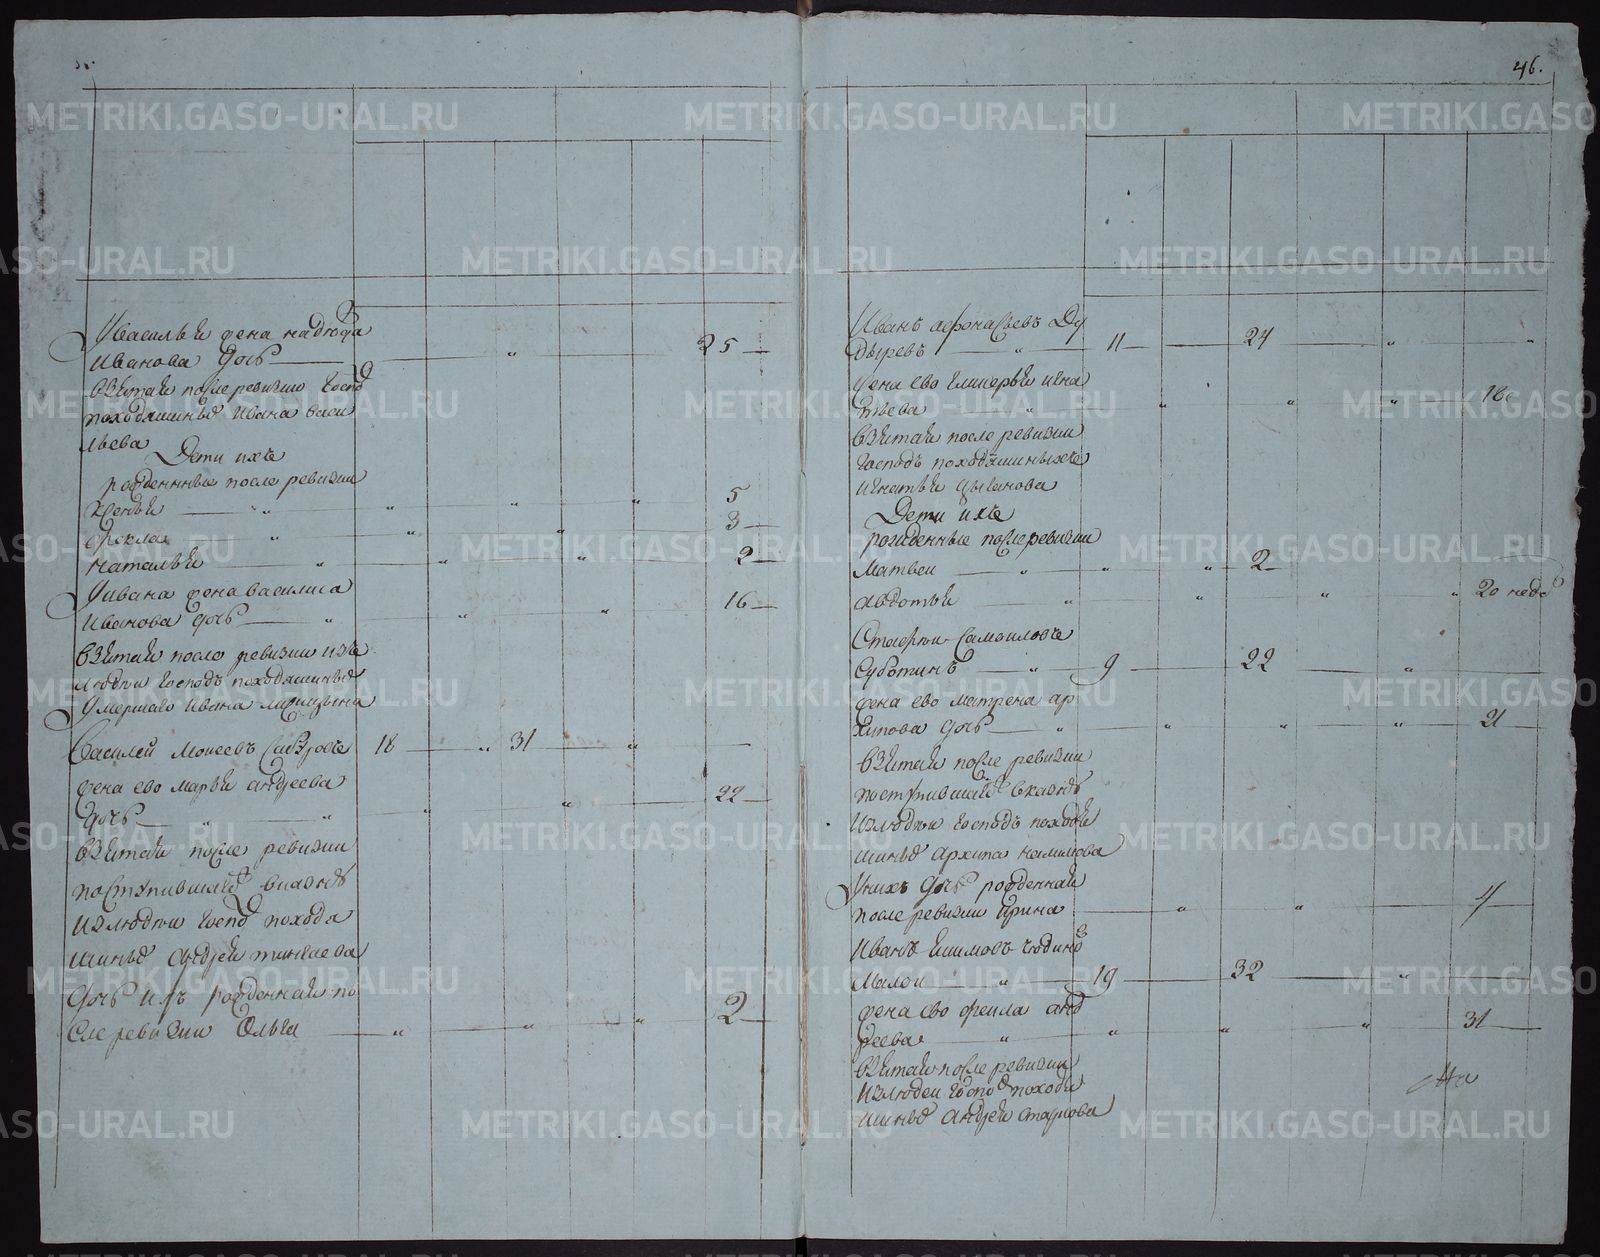 46.
У василья жена надежда
Иванова дочь 25
взятая после ревизии госпд
походяшиныхъ Ивана Васи
льева
Дети ихъ
рожденныые после ревизии
5
Фекла 3
Наталья 2
У ивана жена василиса
Иванова дочь 16
взятая после ревизии изъ
людеи господъ походяшиныхъ
Умершаго ивана
Василей Моисеевъ 18 31
жена ево марья андреева
дочь 22
взятая после ревизии
поступившаго в казну
Из людеи госпд походя
шиныхъ Андрея
дочь ихъ рожденная по
сле ревизии Ольга 2
Иванъ афонасьевъ Ду
дыревъ 11 24
жена ево гликерья игна
тьева 18
взятая после ревизии
господъ походяшиныхъ
игнатья цыганова
Дети ихъ
рожденные после ревизии
Матвеи 2
авдотья 20 неде
Самоиловъ
Суботинъ 9 22
жена ево матрена ар
хипова дочь 21
взятая после ревизии
поступившаго в казну
Из людеи господъ походя
шиныхъ архипа
У нихъ дочь рожденная
после ревизии Ирина 4
Иванъ
Малои 19 32
жена ево фекла анд
реева 31
взятая после ревизии
Из людеи госпд походя
шиныхъ андрея
METRIKI.GASO-URAL.RU